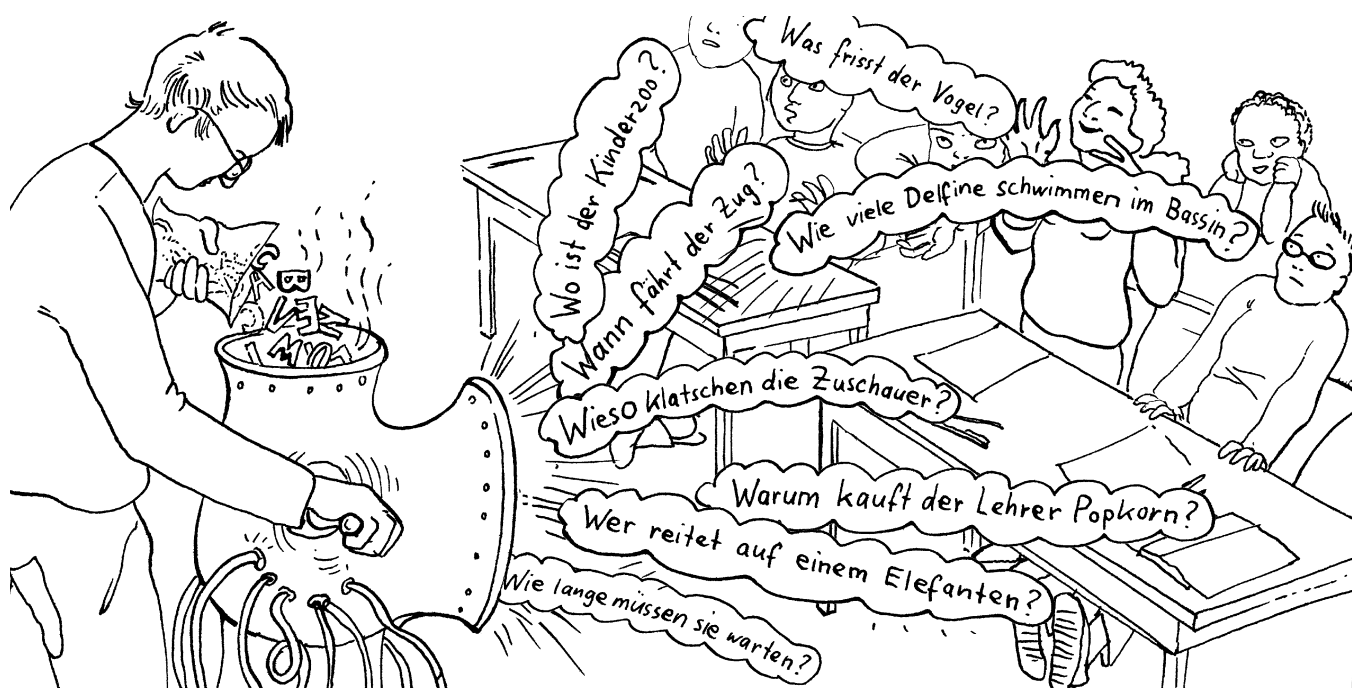 Was frisst der Vogel?
Wo ist der Kinderzoo?
Wann fährt der Zug?
Wie viele Delfine schwimmen im Bassin?
Wieso klatschen die Zuschauer?
Warum kauft der Lehrer Popkorn?
Wer reitet auf einem Elefanten?
Wie lange müssen sie warten?